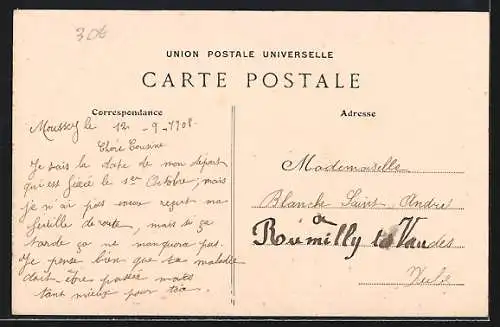 30f
UNION POSTALE UNIVERSELLE
CARTE POSTALE
Correspondance
Adresse
Moussey le 12 - 9 - 1908
Chère Cousine
Je sais la date de mon départ
qui est fixée le 1er Octobre, mais
je n'ai pas encore reçut ma
feuille de route, mais si ça
tarde ça ne manquera pas.
Je pense bien que ta maladie
doit être passée mais
tant mieux pour toi.
Mademoiselle
Blanche Saint Andre
a
Rumilly les Vaudes
Aube